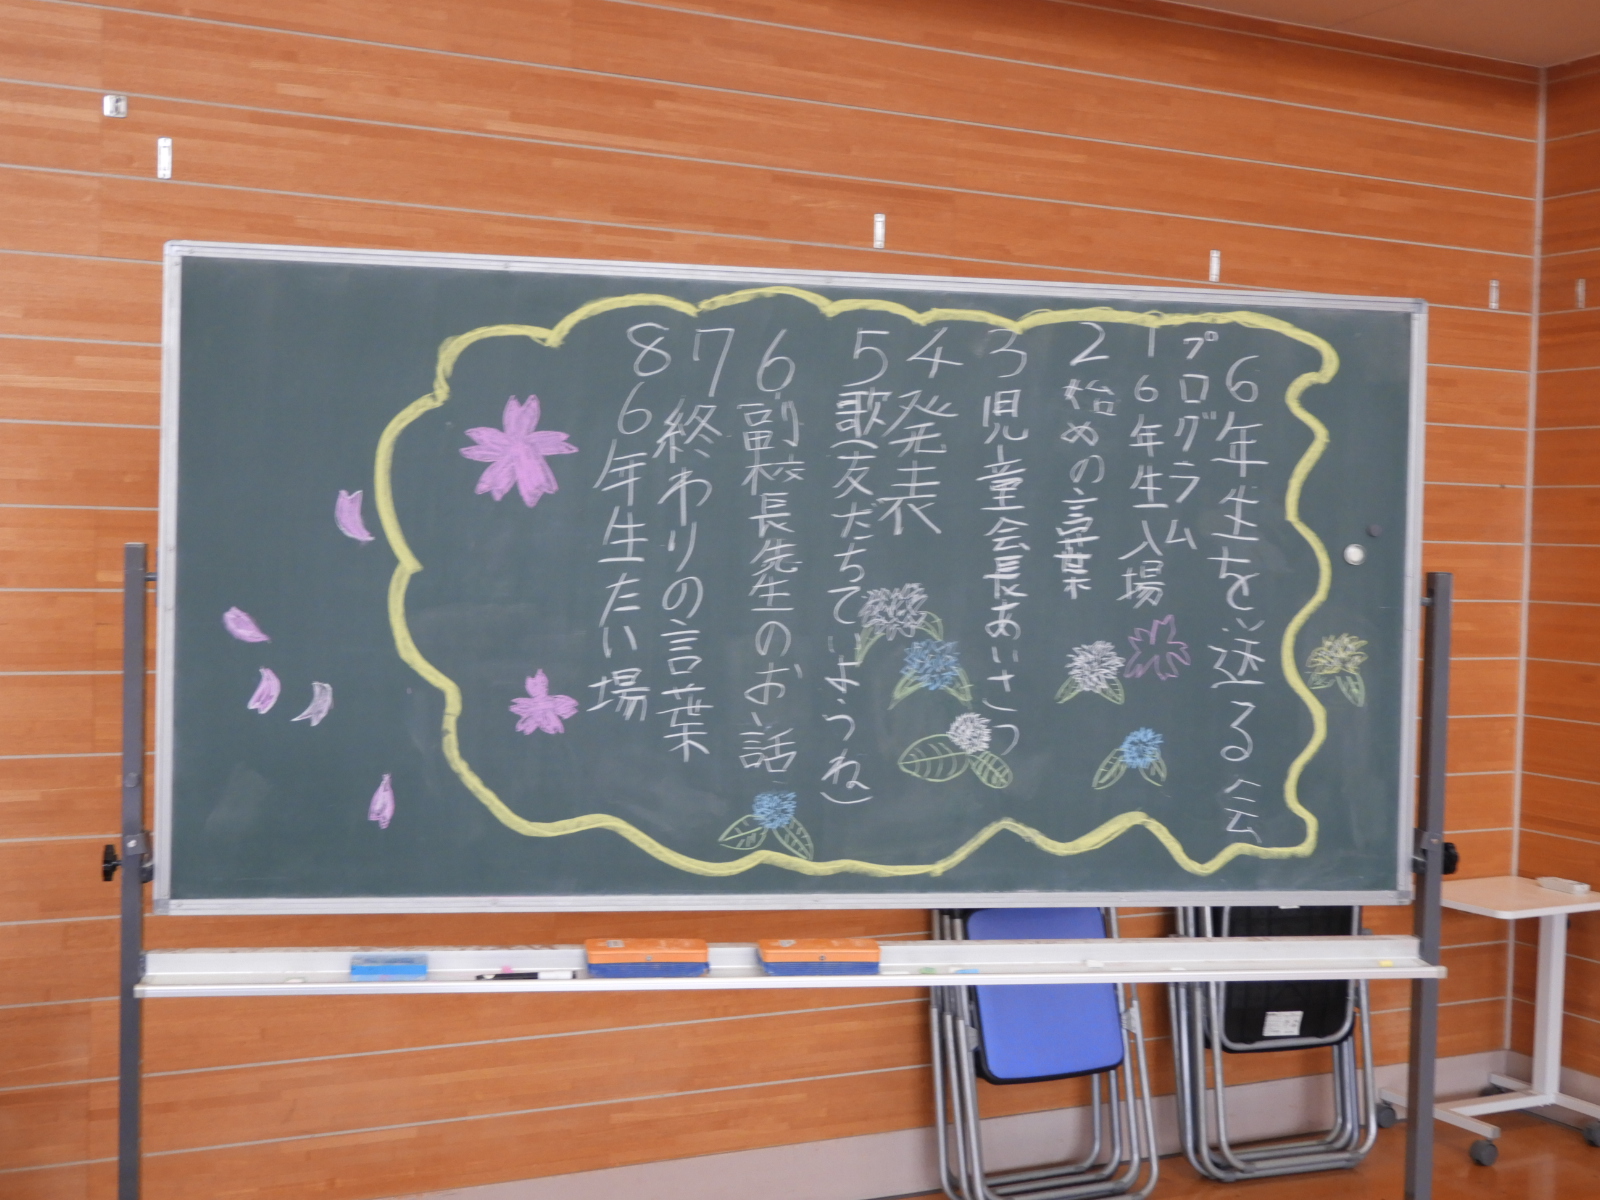 6年生を送る会
プログラム
1 6年生入場
2 始めの言葉
3 児童会長あいさつ
4 発表
5 歌(友だちていいようね)
6 副校長先生のお話
7 終わりの言葉
8 6年生たい場